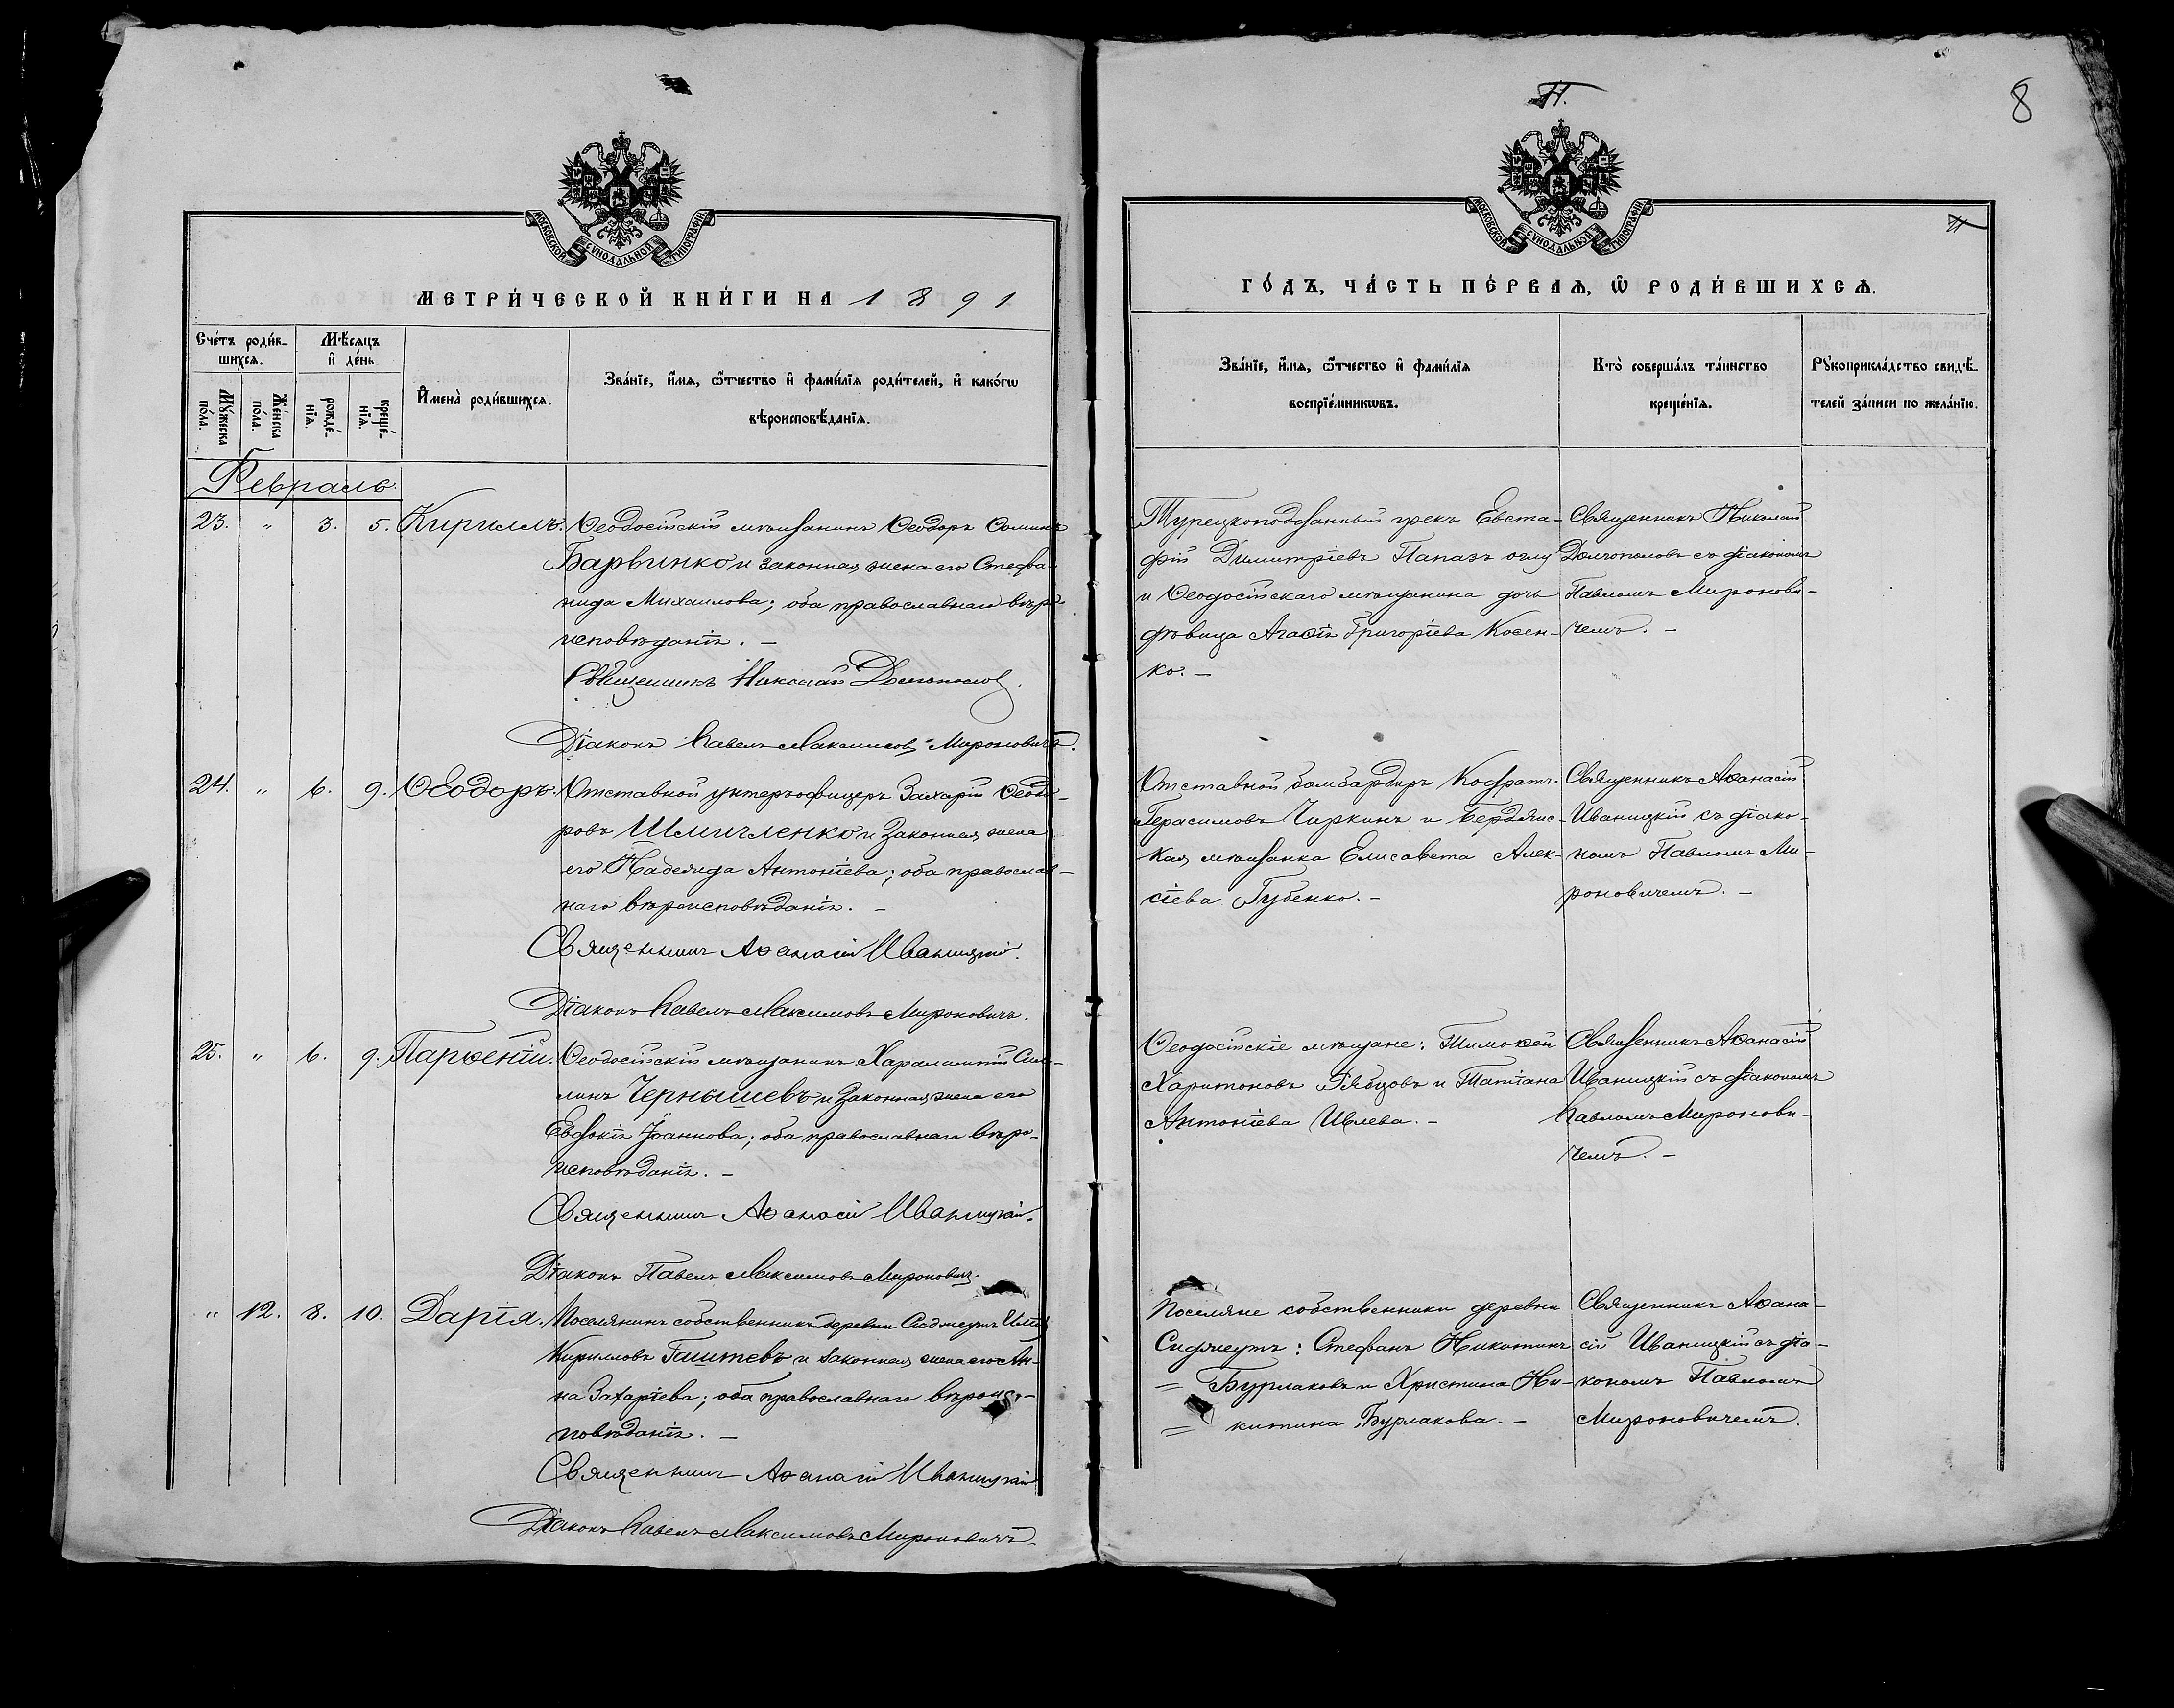 Н.
8
МОСКОВСКОЙ СѴНОДАЛЬНОЙ ТИПОГРАФІИ
МЕТРИ́ЧЕСКОЙ КНИ́ГИ НА 1891
Сче́тъ роди́в-
шихсѧ.
Мꙋ́жеска
по́ла.
Же́нска
по́ла.
Мѣ́сѧцъ
и҆ де́нь
рожде́-
нїѧ.
креще́-
нїѧ.
И҆мена̀ роди́вшихсѧ.
Зва́нїе, и҆́мѧ, ѻ҆́тчество и҆ фами́лїѧ роди́телей, и҆ како́гѡ
вѣроисповѣ́данїѧ.
Февраль.
23. " 3. 5. Кириллъ. Ѳеодосійскій мѣщанинъ Ѳеодоръ Соминъ
Барвинко и законная жена его Стефа-
нида Михаилова; оба православнаго вѣро-
исповѣданія. –
Священникъ Николай Долгополов.
Діаконъ Павелъ Максимовъ Мироновичъ.
24. " 6. 9. Ѳеодоръ. Отставной унтеръ-офицеръ Захарій Ѳеодо-
ровъ Шмигленко и законная жена
его Надежда Антоніева; оба православ-
наго вѣроисповѣданія. –
Священникъ Аѳанасій Иваницкій.
Діаконъ Павелъ Максимовъ Мироновичъ.
25. " 6. 9. Парѳеній. Ѳеодосійскій мѣщанинъ Харалампій
Чернышевъ и законная жена его
Евдокія Іоаннова; оба православнаго вѣро-
исповѣданія. –
Священникъ Аѳанасій Иваницкій.
Діаконъ Павелъ Максимовъ Мироновичъ.
" 12. 8. 10. Дарія. Поселянинъ собственникъ деревни Сиджеутъ Илія
Кирилловъ Гаштевъ и законная жена его Ан-
на Захаріева; оба православнаго вѣроис-
повѣданія. –
Священникъ Аѳанасій Иваницкій
Діаконъ Павелъ Максимовъ Мироновичъ.
МОСКОВСКОЙ СѴНОДАЛЬНОЙ ТИПОГРАФІИ
ГО́ДЪ, ЧА́СТЬ ПЕ́РВАѦ, Ѿ РОДИ́ВШИХСѦ.
Зва́нїе, и҆́мѧ, ѻ҆́тчество и҆ фами́лїѧ
воспрїе́мникѡвъ.
Кто̀ соверша́лъ та́инство
креще́нїѧ.
Рꙋкоприкла́дство свидѣ́-
телей за́писи по жела́нїю.
Турецкоподданный грекъ Евста-
фій Димитріевъ Папазъ оглу
и Ѳеодосійскаго мѣщанина дочь
дѣвица Агаѳія Григоріева Косен-
ко. –
Священникъ Николай
Долгополовъ съ діакономъ
Павломъ Миронови-
чемъ. –
Отставной бомбардиръ Кодратъ
Герасимовъ Чиркинъ и Бердянс-
кая мѣщанка Елисавета Алек-
сіева Губенко. –
Священникъ Аѳанасій
Иваницкій съ діако-
номъ Павломъ Ми-
роновичемъ. –
Ѳеодосійскіе мѣщане: Тимоѳей
Харитоновъ Рябцовъ и Татіана
Антоніева Ивлева. –
Священникъ Аѳанасій
Иваницкій съ діакономъ
Павломъ Миронови-
чемъ. –
Поселяне собственники деревни
Сиджеутъ: Стефанъ Никитинъ
= Бурлаковъ и Христина Ни-
= китина Бурлакова. –
Священникъ Аѳана-
сій Иваницкій съ діа-
кономъ Павломъ
Мироновичемъ.